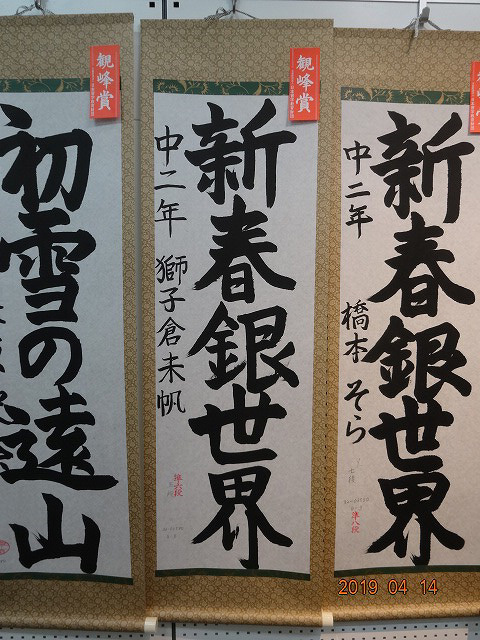 観峰賞
新春銀世界
中二年 橋本そら
準八段
観峰賞
新春銀世界
中二年 獅子倉未帆
準六段
観峰賞
初雪の遠山
2019 04 14